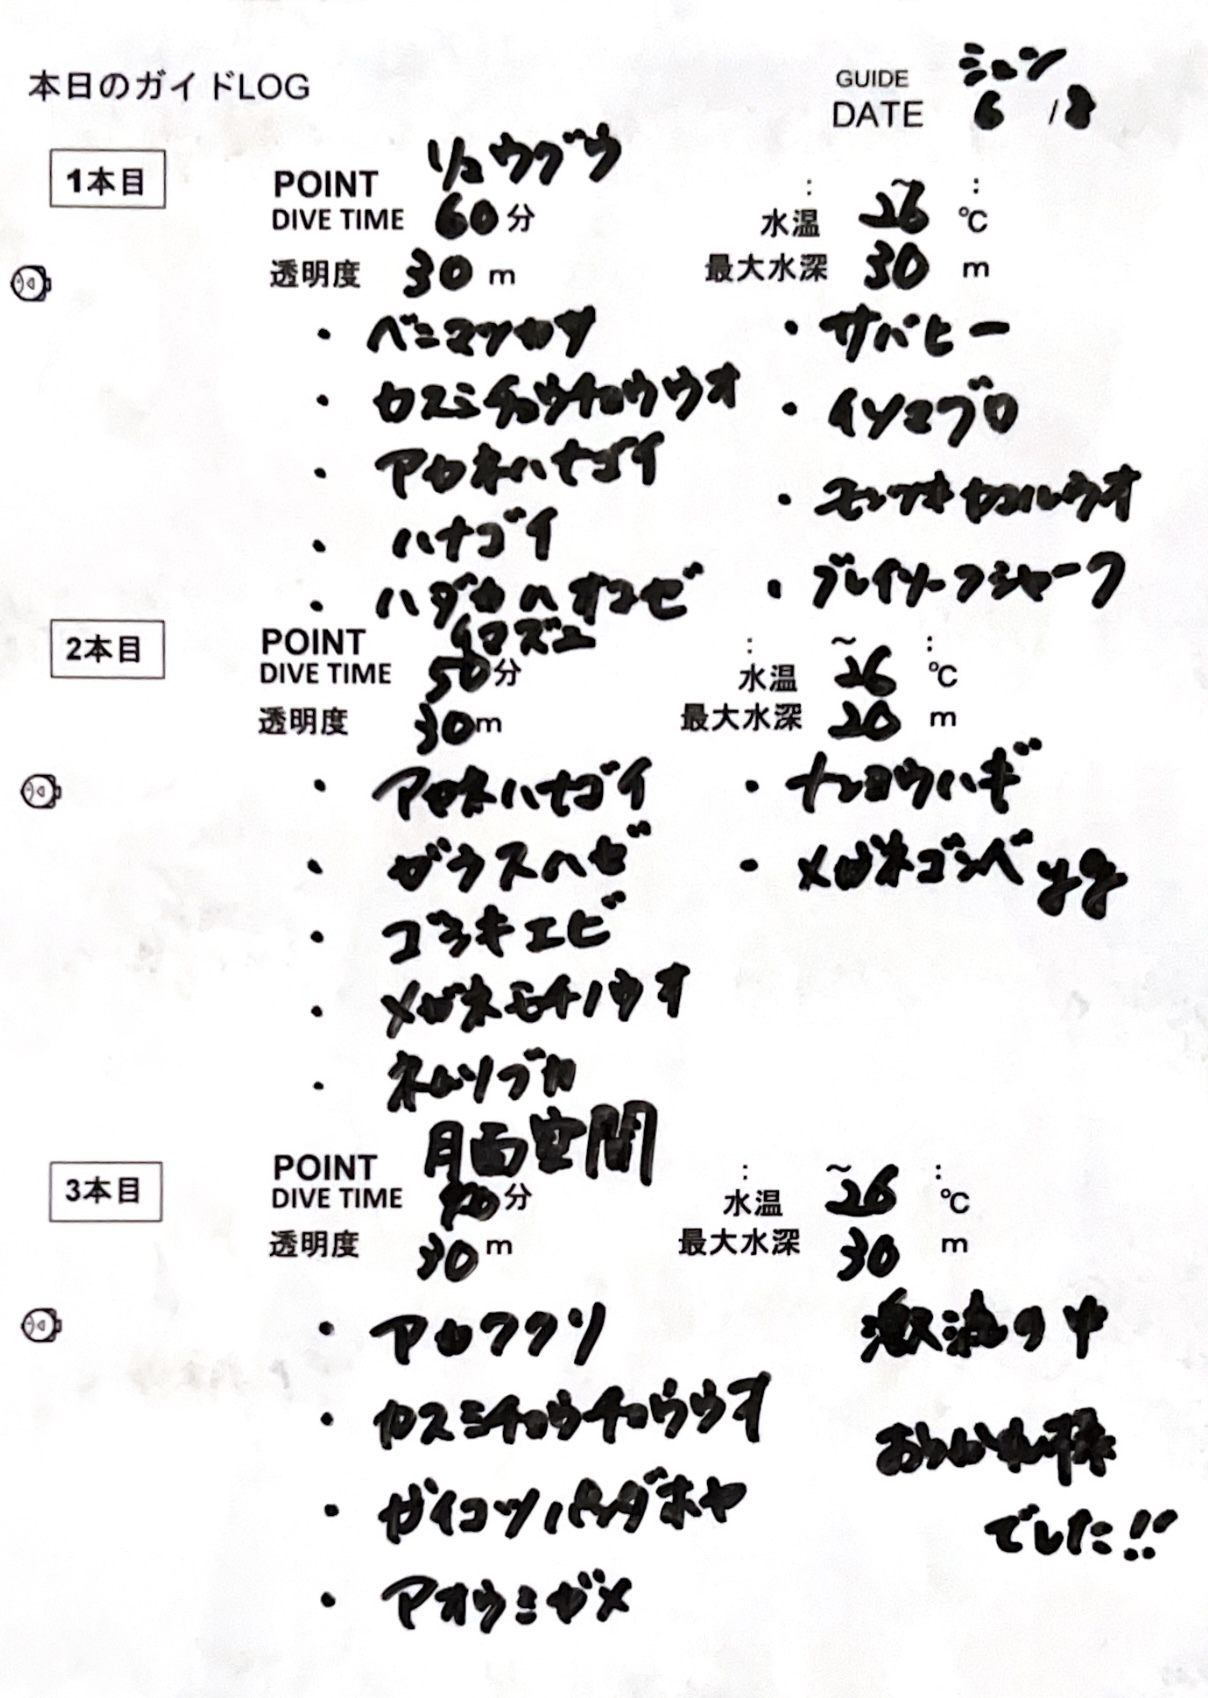 本日のガイドLOG
GUIDE シュン
DATE 6/8
1本目
POINT リュウグウ
DIVE TIME 60分
: ~ :
水温 26 ℃
透明度 30 m
最大水深 30 m
・ベニマツカサ
・カスミチョウチョウウオ
・アカネハナゴイ
・ハナゴイ
・ハダカハオコゼ
・サバヒー
・イソマグロ
・モンツキカエルウオ
・グレイリーフシャーク
2本目
POINT イロズエ
DIVE TIME 50分
: ~ :
水温 26 ℃
透明度 30m
最大水深 20 m
・アカネハナゴイ
・ガラスハゼ
・ゴシキエビ
・メガネモチノウオ
・ネムリブカ
・ナンヨウハギ
・メガネゴンベyg
3本目
POINT 月面空間
DIVE TIME 40分
: ~ :
水温 26 ℃
透明度 30 m
最大水深 30 m
・アカククリ
・カスミチョウチョウウオ
・ガイコツパンダホヤ
・アオウミガメ
激流の中
おつかれ様
でした!!